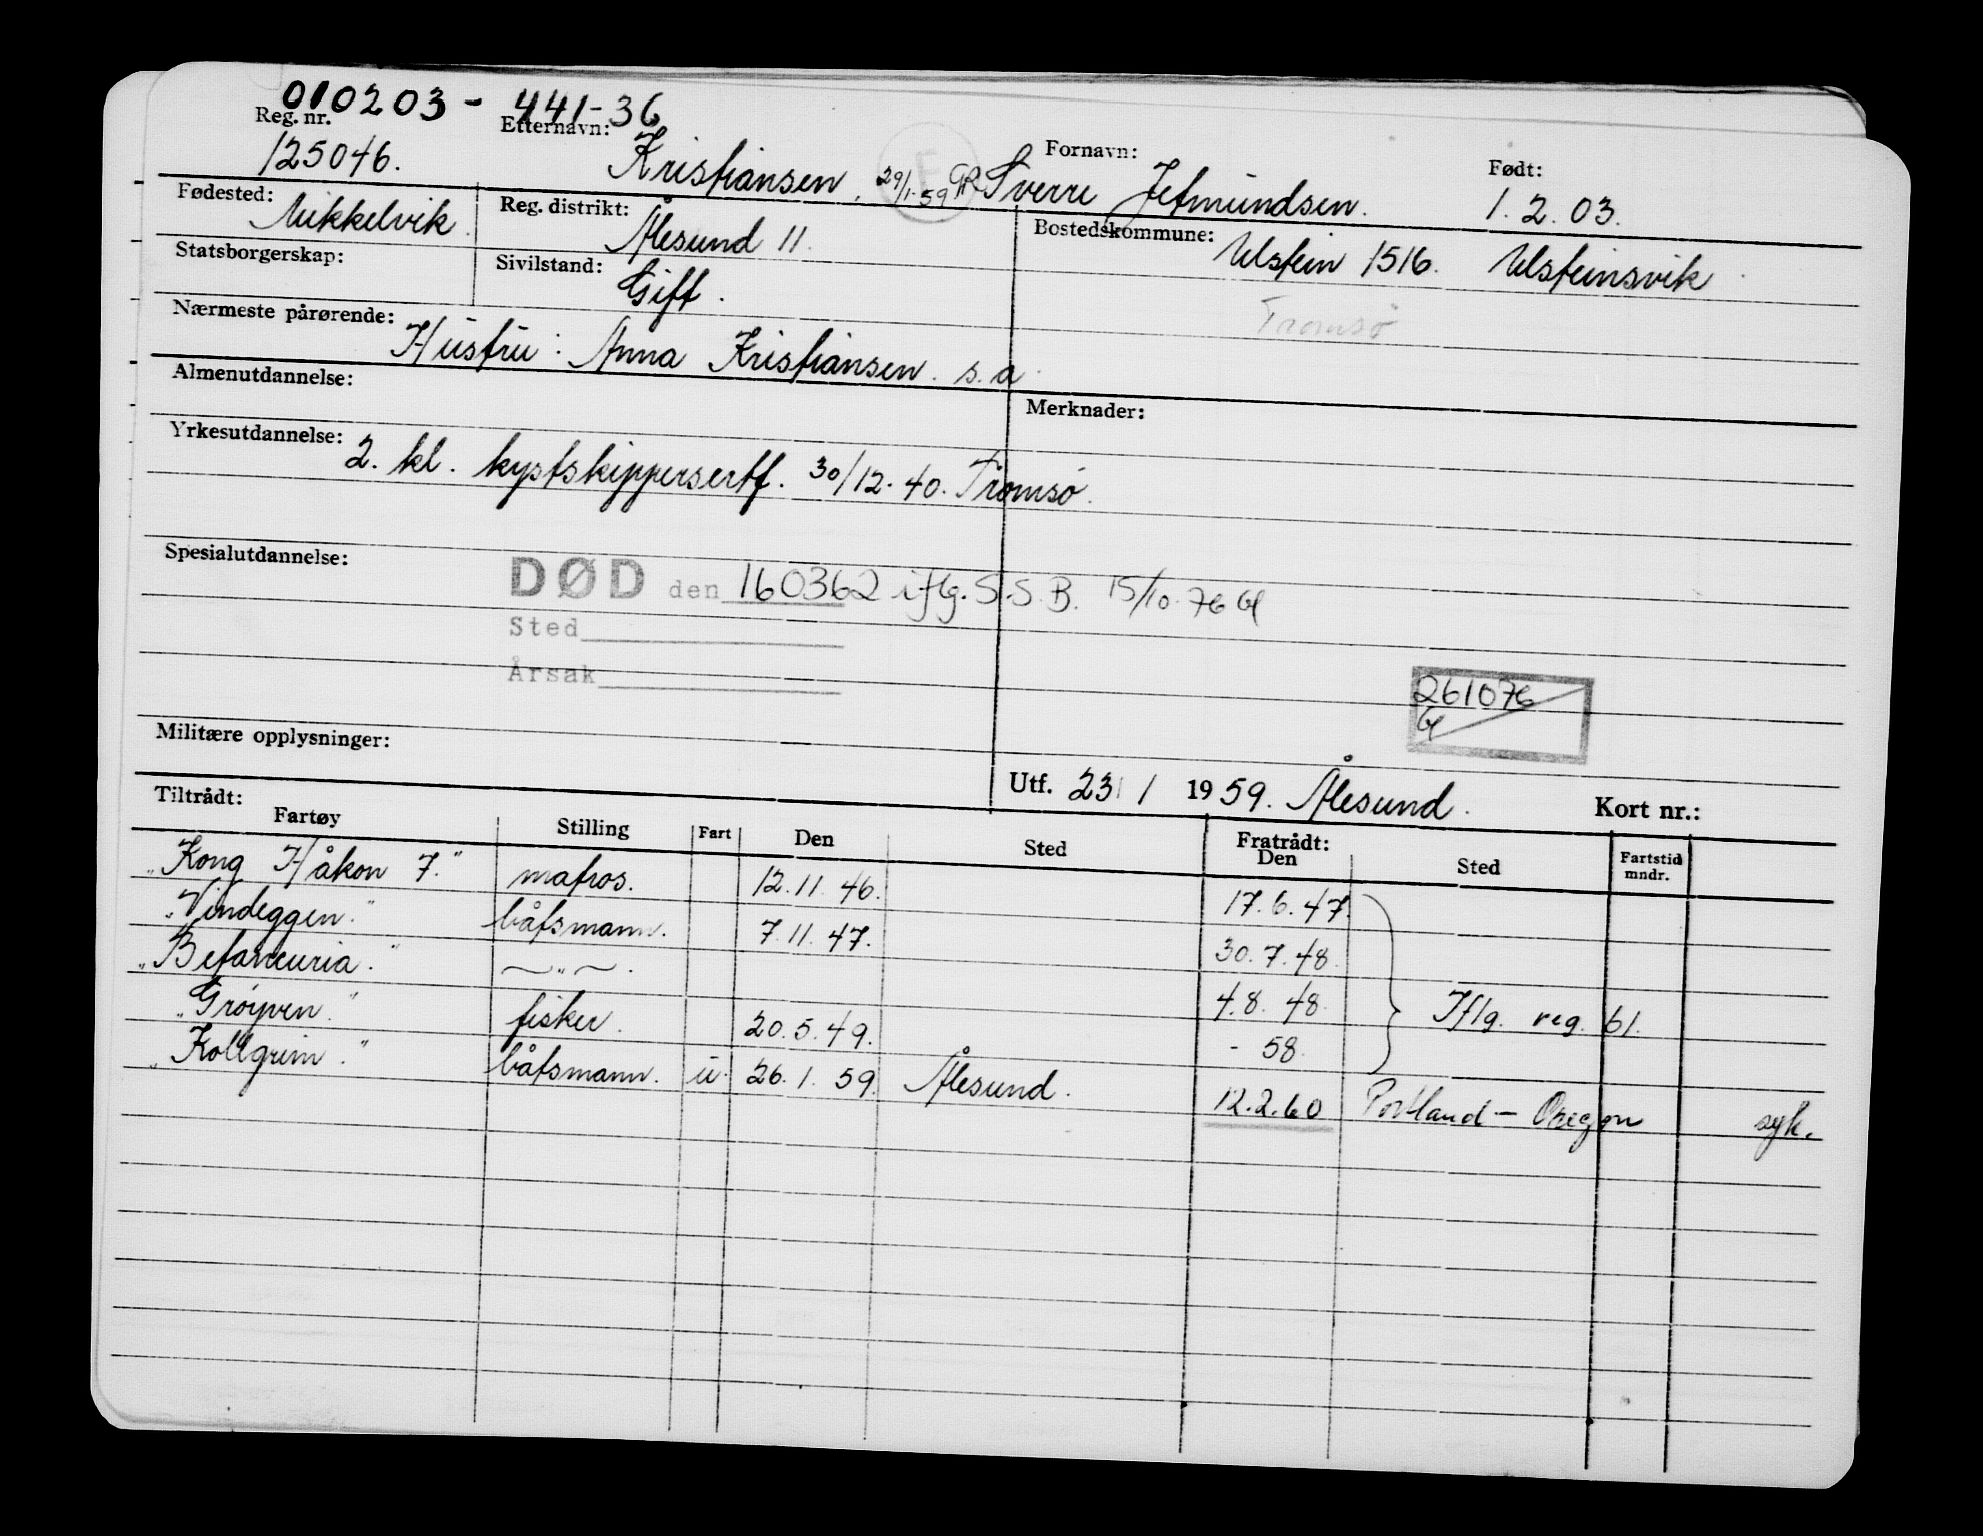 010203 - 441-36
Reg. nr. Etternavn: Fornavn: Født:
125046. Kristiansen, 29/1-59 Sverre Jetmundsen. 1. 2. 03.
Fødested: Mikkelvik. Reg. distrikt: Ålesund 11. Bostedskommune: Ulstein 1516. Ulsteinsvik
Statsborgerskap: Sivilstand: Gift. Tromsø
Nærmeste pårørende: Hustru: Anna Kristiansen. s.a.
Almenutdannelse: Merknader:
Yrkesutdannelse: 2. kl. kystskippersertf. 30/12-40. Tromsø.
Spesialutdannelse:
DØD den 160362 iflg. S.S.B. 15/10-76
Sted
Årsak
261076
Militære opplysninger:
Utf. 23 / 1 1959. Ålesund. Kort nr.:
Tiltrådt: Fratrådt:
Fartøy Stilling Fart Den Sted Den Sted Fartstid mndr.
"Kong Håkon 7." matros. 12. 11. 46. 17. 6. 47.
"Vindeggen." båtsmann. 7. 11. 47. 30. 7. 48.
" " 4. 8. 48
" " fisker. 20. 5. 49. - 58. Iflg. reg. bl.
"Kollgrim." båtsmann. u. 26. 1. 59. Ålesund. 12.2.60 Portland - Oregon syk.